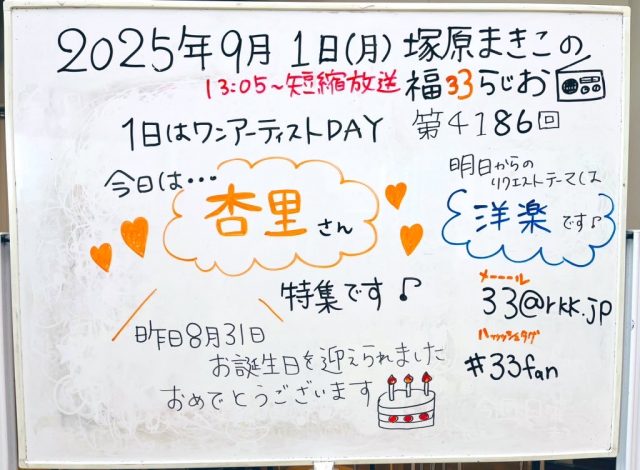 2025年9月1日(月)塚原まきこの
13:05〜短縮放送 福33らじお
1日はワンアーティストDAY 第4186回
今日は・・・
杏里さん
特集です♪
昨日8月31日
お誕生日を迎えられました
おめでとうございます
明日からの
リクエストテーマは
洋楽です♪
メーーール
33@rkk.jp
ハッシュタグ
#33fan